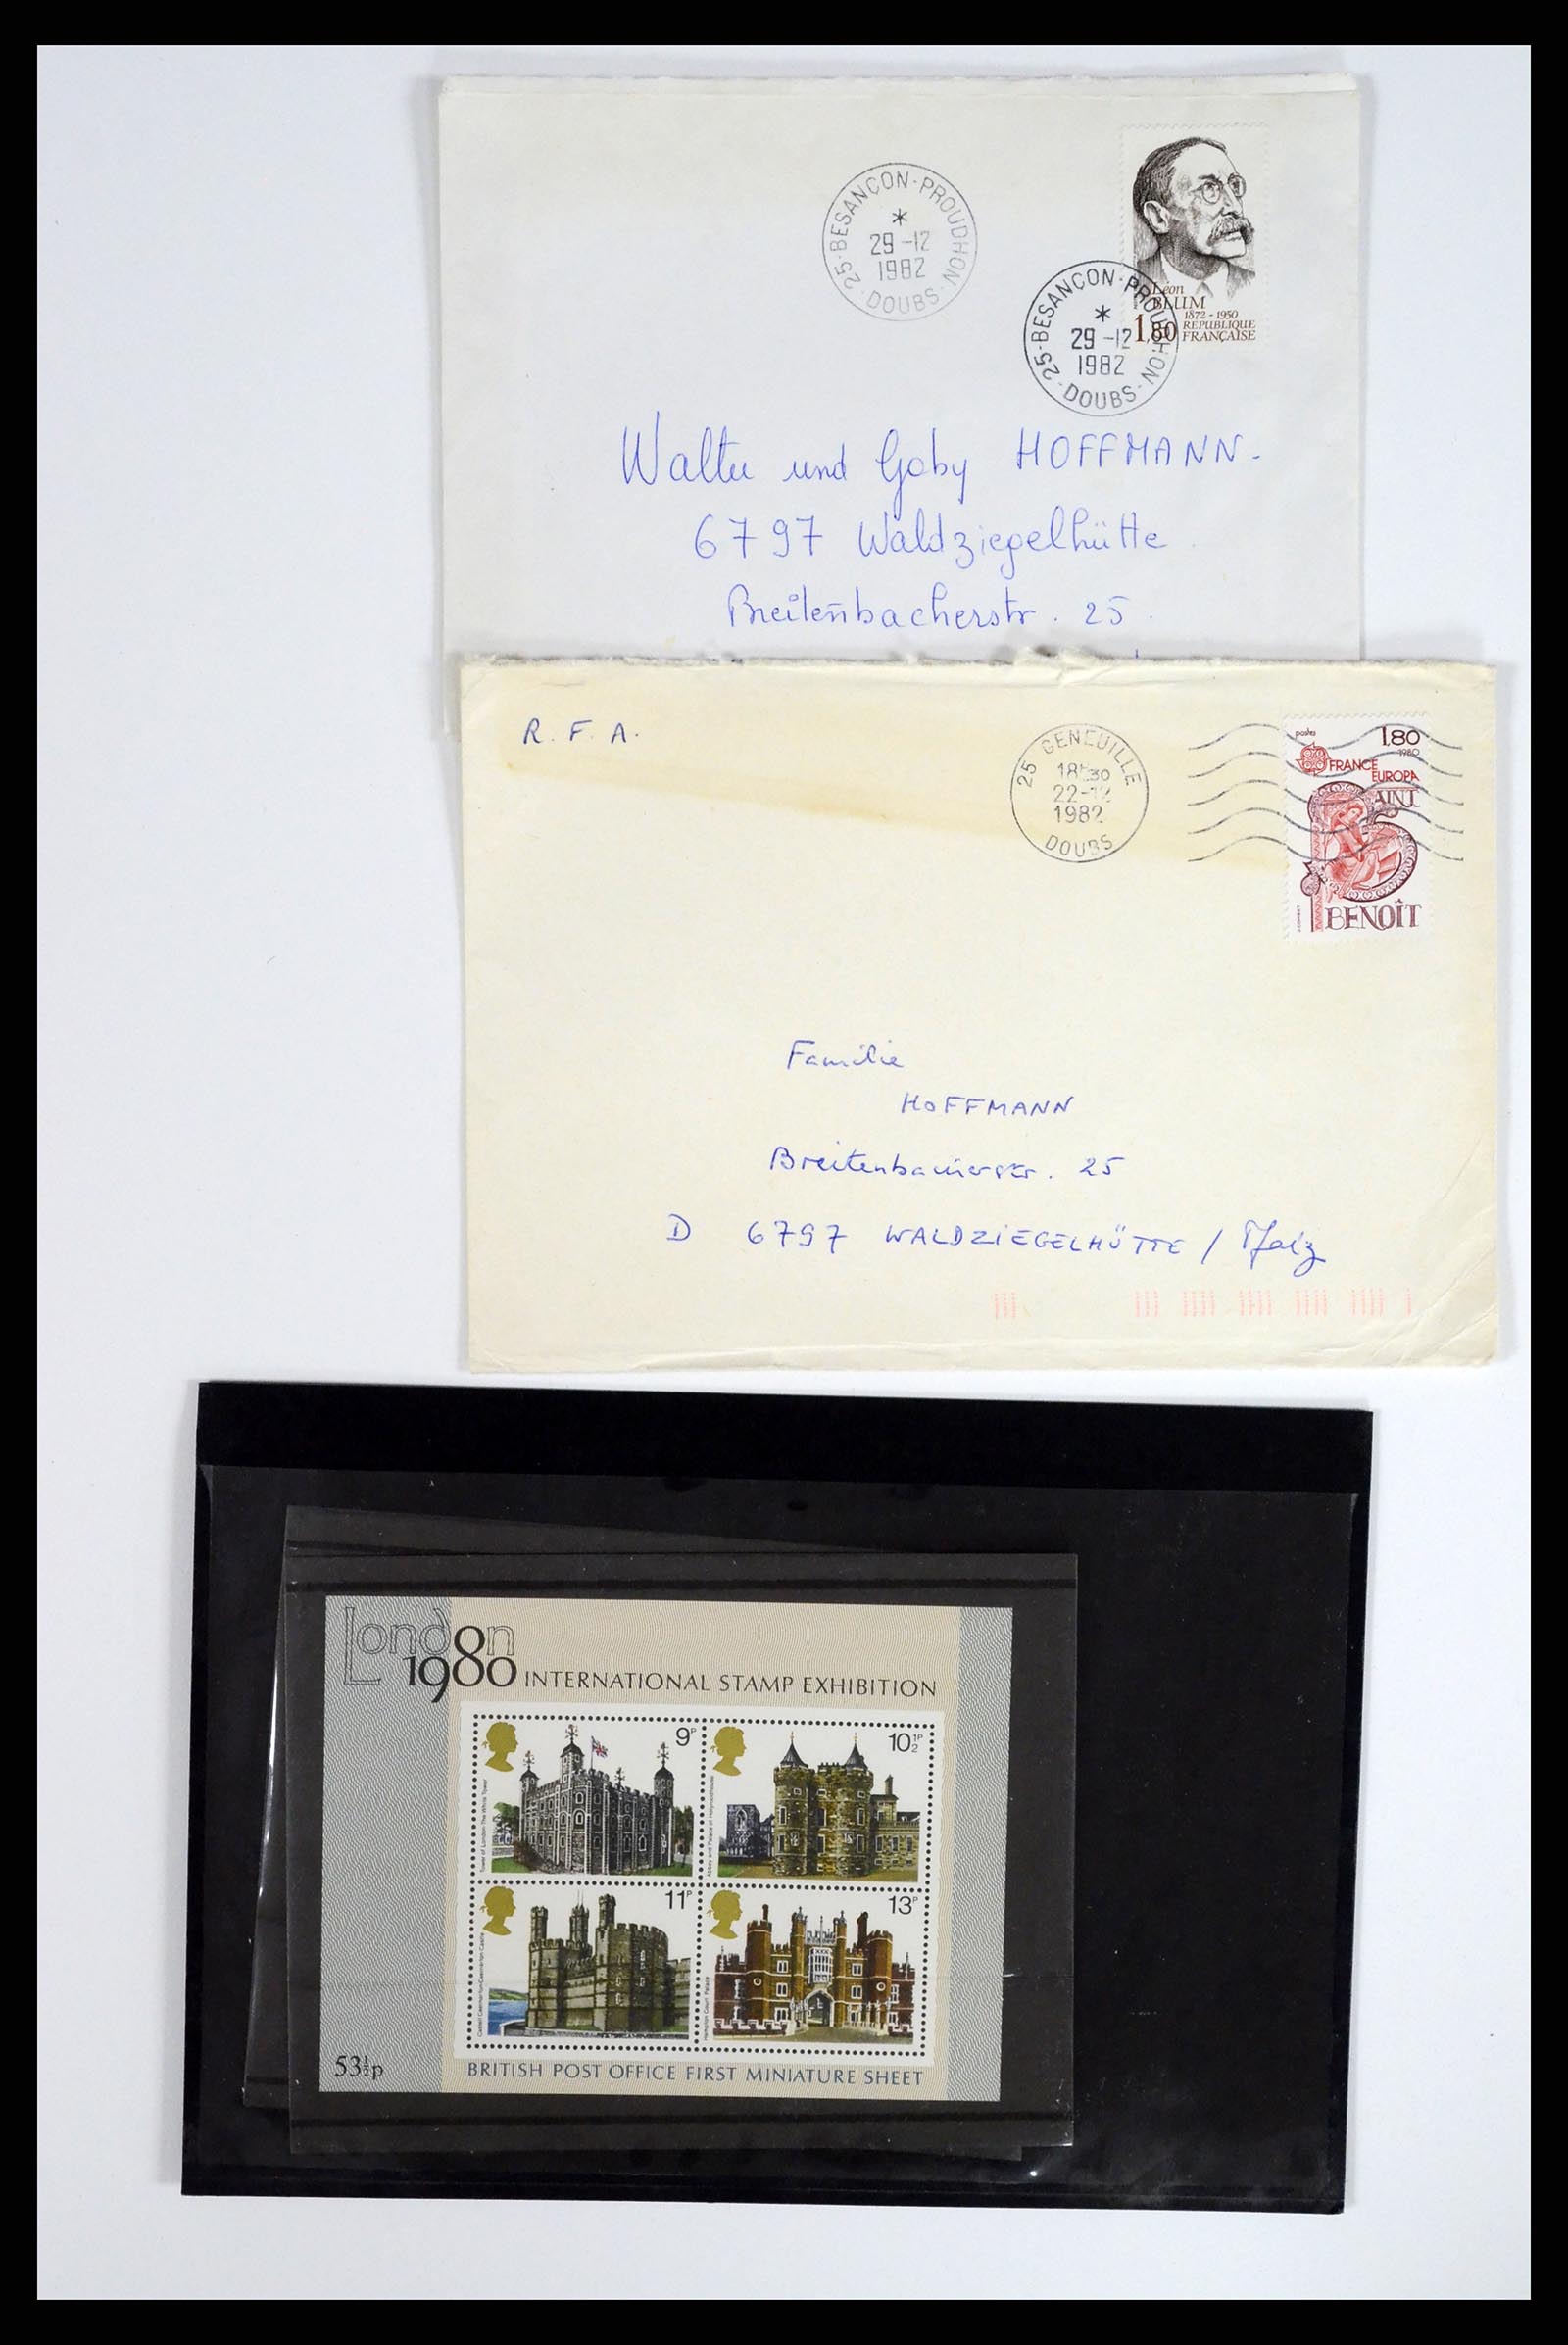 25·BESANÇON-PROUDHON
*
29-12
1982
·DOUBS·
25·BESANÇON-PROUDHON
*
29-12
1982
·DOUBS·
Léon
BLUM
1872-1950
1,80 REPUBLIQUE
FRANÇAISE
Walter und Gaby HOFFMANN.
6797 Waldziegelhütte
Breitenbacherstr. 25.
R. F. A.
25 GENEUILLE
18H30
22-12
1982
DOUBS
postes 1,80
1980
FRANCE
EUROPA
SAINT
BENOÎT
Familie
HOFFMANN
Breitenbacherstr. 25
D 6797 WALDZIEGELHÜTTE / Pfalz
London
1980 INTERNATIONAL STAMP EXHIBITION
9P
Tower of London The White Tower
10½P
Abbey and Palace of Holyroodhouse
11P
Castell Caernarfon/Caernarfon Castle
13P
Hampton Court Palace
53½p
BRITISH POST OFFICE FIRST MINIATURE SHEET